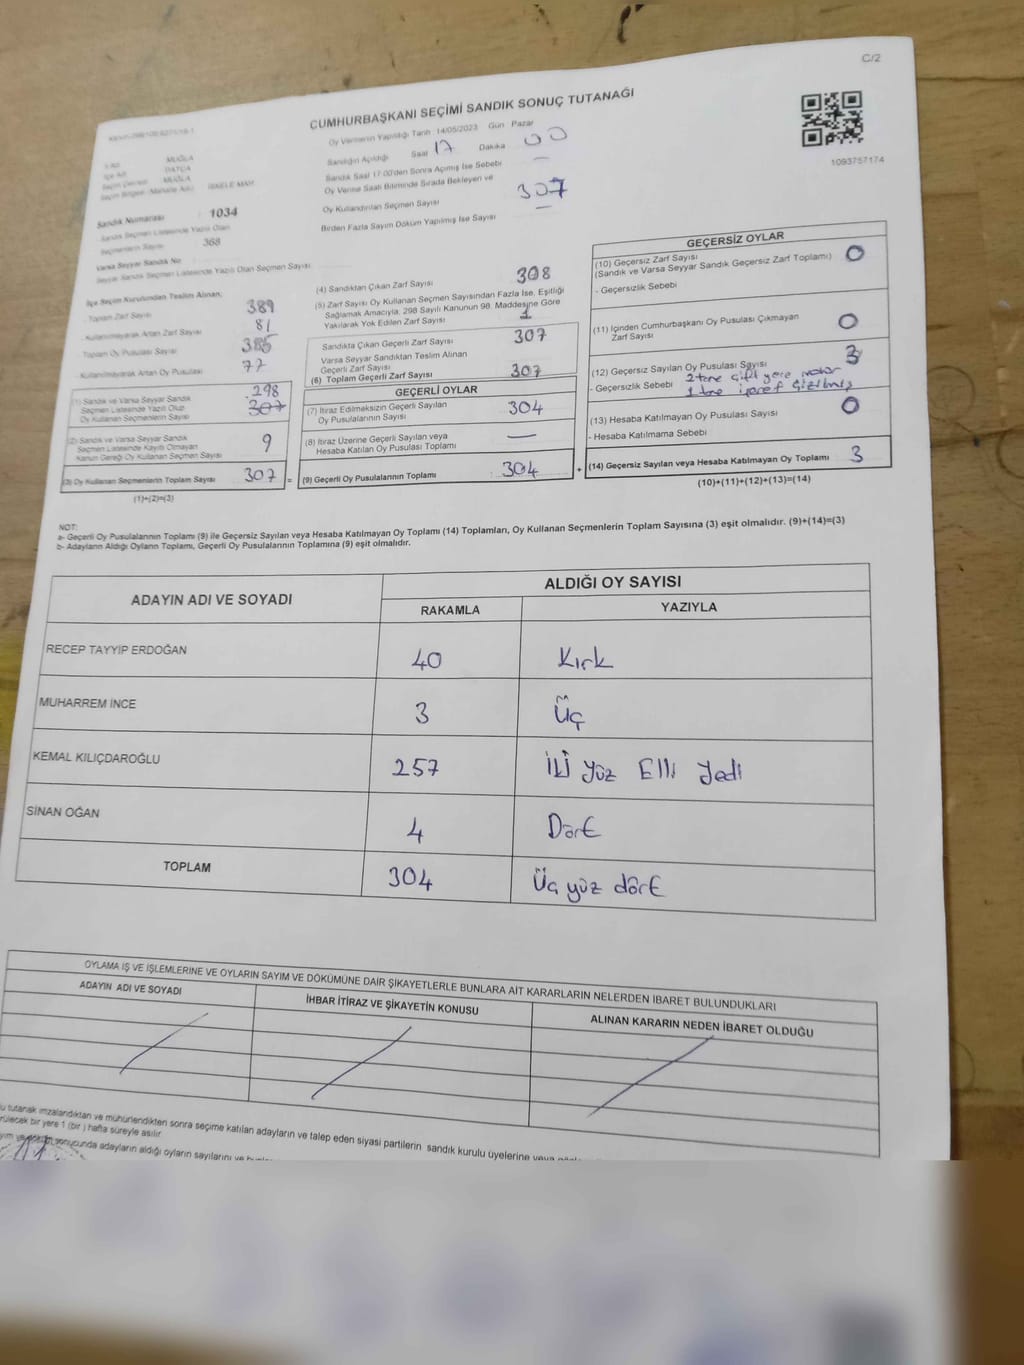 C/2
CUMHURBAŞKANI SEÇİMİ SANDIK SONUÇ TUTANAĞI
Oy Vermenin Yapıldığı Tarih : 14/05/2023 Gün Pazar
Sandığın Açıldığı Saat 17 Dakika 00
Sandık Saat 17:00'den Sonra Açılmış İse Sebebi —
Oy Verme Saati Bitiminde Sırada Bekleyen ve
Oy Kullandırılan Seçmen Sayısı 307
Birden Fazla Sayım Döküm Yapılmış İse Sayısı —
1093757174
MUĞLA
DATÇA
MUĞLA
İSKELE MAH.
Sandık Numarası : 1034
Sandık Seçmen Listesinde Yazılı Olan
Seçmenlerin Sayısı 368
Varsa Seyyar Sandık No
Seyyar Sandık Seçmen Listesinde Yazılı Olan Seçmen Sayısı
İlçe Seçim Kurulundan Teslim Alınan;
- Toplam Zarf Sayısı 389
- Kullanılmayarak Artan Zarf Sayısı 81
Toplam Oy Pusulası Sayısı 385
- Kullanılmayarak Artan Oy Pusulası 77
298
(1) Sandık ve Varsa Seyyar Sandık
Seçmen Listesinde Yazılı Olup
Oy Kullanan Seçmenlerin Sayısı 307
(2) Sandık ve Varsa Seyyar Sandık
Seçmen Listesinde Kayıtlı Olmayan
Kanun Gereği Oy Kullanan Seçmen Sayısı 9
(3) Oy Kullanan Seçmenlerin Toplam Sayısı 307 =
(1)+(2)=(3)
(4) Sandıktan Çıkan Zarf Sayısı 308
(5) Zarf Sayısı Oy Kullanan Seçmen Sayısından Fazla İse, Eşitliği
Sağlamak Amacıyla; 298 Sayılı Kanunun 98. Maddesine Göre
Yakılarak Yok Edilen Zarf Sayısı 1
Sandıkta Çıkan Geçerli Zarf Sayısı 307
Varsa Seyyar Sandıktan Teslim Alınan
Geçerli Zarf Sayısı
(6) Toplam Geçerli Zarf Sayısı 307
GEÇERLİ OYLAR
(7) İtiraz Edilmeksizin Geçerli Sayılan
Oy Pusulasının Sayısı 304
(8) İtiraz Üzerine Geçerli Sayılan veya
Hesaba Katılan Oy Pusulası Toplamı —
(9) Geçerli Oy Pusulalarının Toplamı : 304 +
GEÇERSİZ OYLAR
(10) Geçersiz Zarf Sayısı
(Sandık ve Varsa Seyyar Sandık Geçersiz Zarf Toplamı) 0
- Geçersizlik Sebebi
(11) İçinden Cumhurbaşkanı Oy Pusulası Çıkmayan
Zarf Sayısı 0
(12) Geçersiz Sayılan Oy Pusulası Sayısı 3
- Geçersizlik Sebebi 2 tane çift yere mühür
1 tane işaret çizilmiş
(13) Hesaba Katılmayan Oy Pusulası Sayısı 0
- Hesaba Katılmama Sebebi
(14) Geçersiz Sayılan veya Hesaba Katılmayan Oy Toplamı 3
(10)+(11)+(12)+(13)=(14)
NOT:
a- Geçerli Oy Pusulalarının Toplamı (9) ile Geçersiz Sayılan veya Hesaba Katılmayan Oy Toplamı (14) Toplamları, Oy Kullanan Seçmenlerin Toplam Sayısına (3) eşit olmalıdır. (9)+(14)=(3)
b- Adayların Aldığı Oyların Toplamı, Geçerli Oy Pusulalarının Toplamına (9) eşit olmalıdır.
ADAYIN ADI VE SOYADI ALDIĞI OY SAYISI
RAKAMLA YAZIYLA
RECEP TAYYİP ERDOĞAN 40 Kırk
MUHARREM İNCE 3 Üç
KEMAL KILIÇDAROĞLU 257 İki Yüz Elli Yedi
SİNAN OĞAN 4 Dört
TOPLAM 304 Üç yüz dört
OYLAMA İŞ VE İŞLEMLERİNE VE OYLARIN SAYIM VE DÖKÜMÜNE DAİR ŞİKAYETLERLE BUNLARA AİT KARARLARIN NELERDEN İBARET BULUNDUKLARI
ADAYIN ADI VE SOYADI İHBAR İTİRAZ VE ŞİKAYETİN KONUSU ALINAN KARARIN NEDEN İBARET OLDUĞU
tutanak imzalandıktan ve mühürlendikten sonra seçime katılan adayların ve talep eden siyasi partilerin sandık kurulu üyelerine veya
bir yere 1 (bir) hafta süreyle asılır.
sonucunda adayların aldığı oyların sayılarını ve